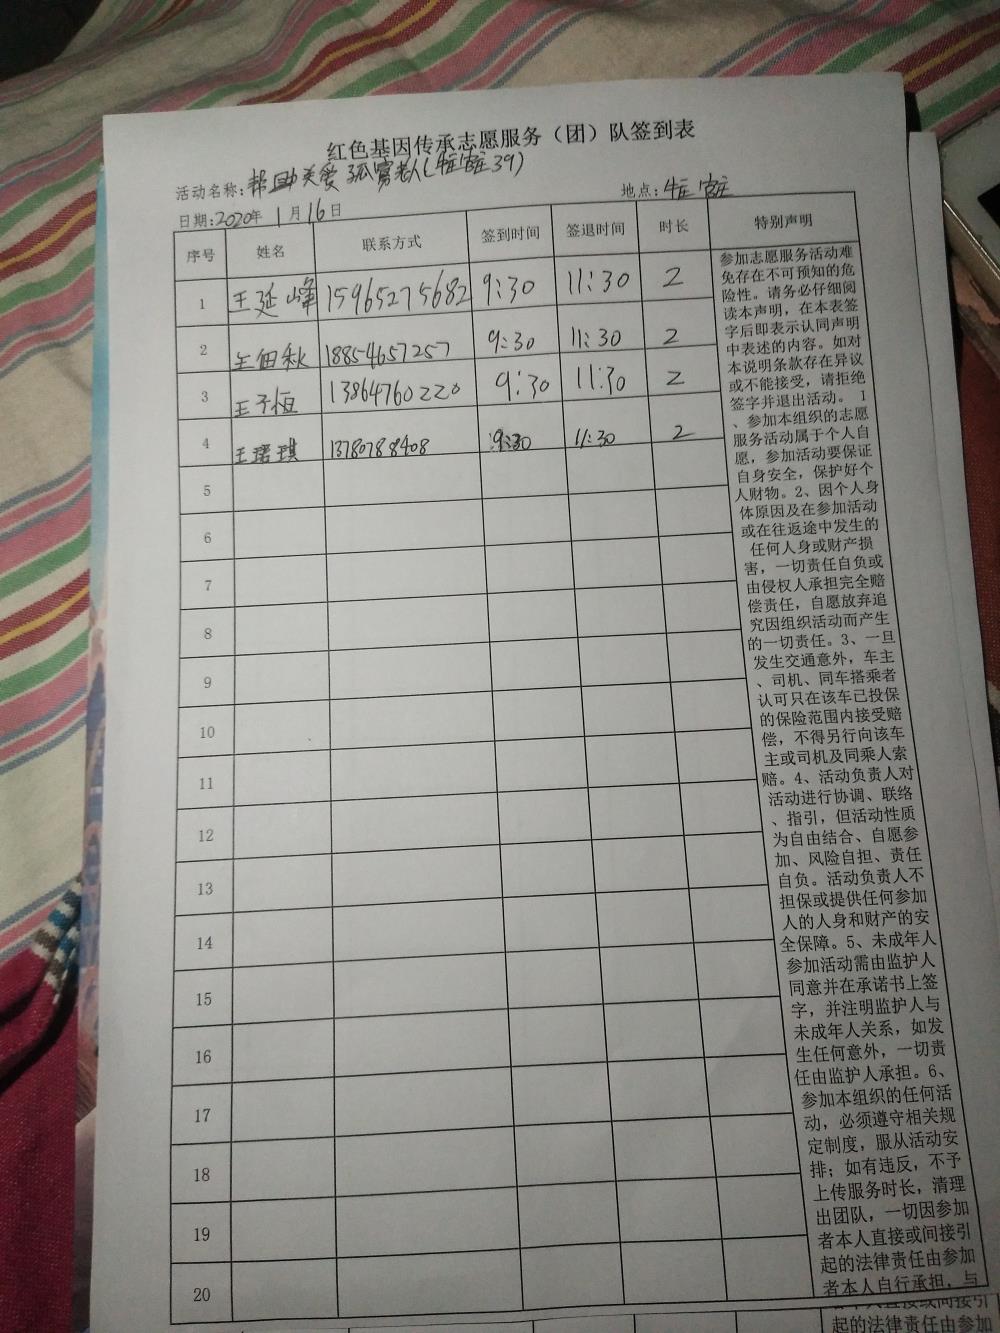 红色基因传承志愿服务（团）队签到表
活动名称：帮助关爱孤寡老人(牛官庄39)
地点：牛官庄
日期：2020年1月16日
序号 姓名 联系方式 签到时间 签退时间 时长 特别声明
1 王延峰 15965275682 9:30 11:30 2
2 王田秋 18854657257 9:30 11:30 2
3 王子恒 13864760220 9:30 11:30 2
4 王珺琪 13780788408 9:30 11:30 2
5
6
7
8
9
10
11
12
13
14
15
16
17
18
19
20
参加志愿服务活动难
免存在不可预知的危
险性。请务必仔细阅
读本声明，在本表签
字后即表示认同声明
中表述的内容。如对
本说明条款存在异议
或不能接受，请拒绝
签字并退出活动。 1
、参加本组织的志愿
服务活动属于个人自
愿，参加活动要保证
自身安全，保护好个
人财物。2、因个人身
体原因及在参加活动
或在往返途中发生的
任何人身或财产损
害，一切责任自负或
由侵权人承担完全赔
偿责任，自愿放弃追
究因组织活动而产生
的一切责任。3、一旦
发生交通意外，车主
、司机、同车搭乘者
认可只在该车已投保
的保险范围内接受赔
偿，不得另行向该车
主或司机及同乘人索
赔。4、活动负责人对
活动进行协调、联络
、指引，但活动性质
为自由结合、自愿参
加、风险自担、责任
自负。活动负责人不
担保或提供任何参加
人的人身和财产的安
全保障。5、未成年人
参加活动需由监护人
同意并在承诺书上签
字，并注明监护人与
未成年人关系，如发
生任何意外，一切责
任由监护人承担。6、
参加本组织的任何活
动，必须遵守相关规
定制度，服从活动安
排；如有违反，不予
上传服务时长，清理
出团队，一切因参加
者本人直接或间接引
起的法律责任由参加
者本人自行承担，与
者本人直接或间接引
起的法律责任由参加